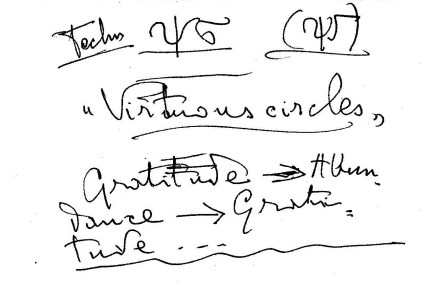 Techno ψσ (ψσ)
"Virtuous circles"
Gratitude → Abun-
dance → Grati=
tude ...